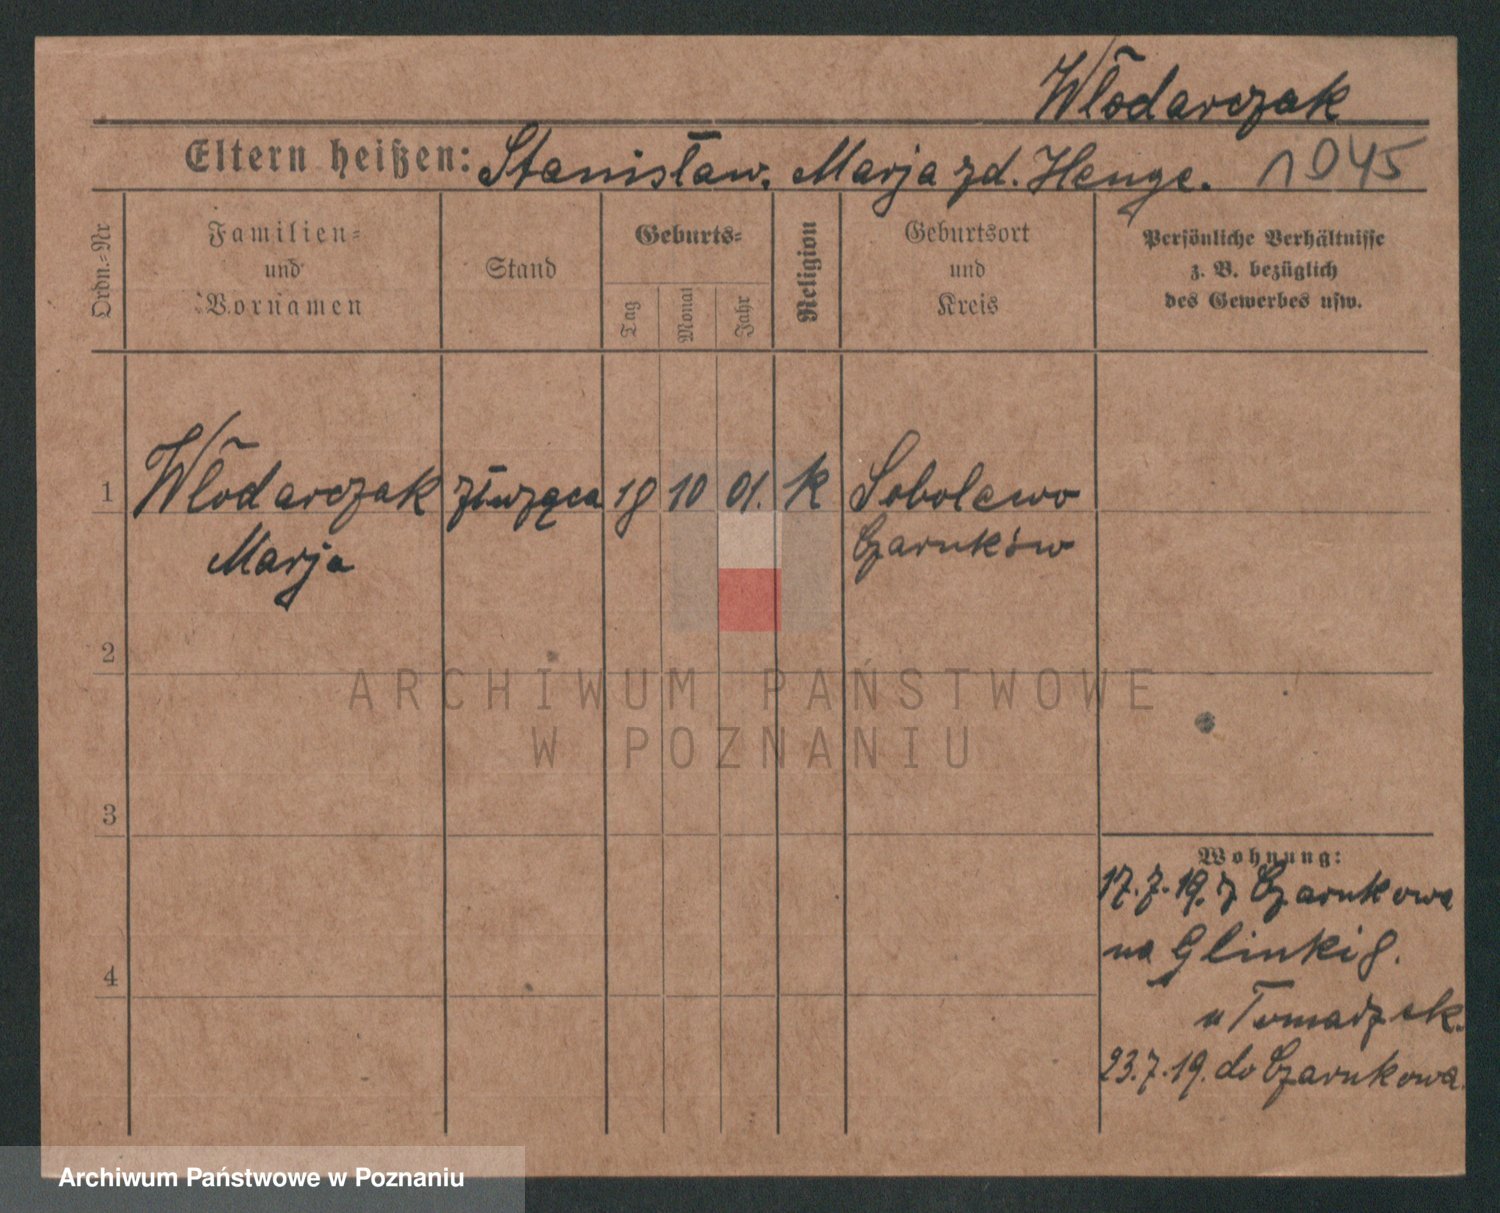 Włodarczak
Eltern heißen: Stanisław. Marja zd. Henge. 1945
Ordn.-Nr
Familien-
und
Vornamen
Stand
Geburts-
Tag
Monat
Jahr
Religion
Geburtsort
und
Kreis
Persönliche Verhältnisse
z. B. bezüglich
des Gewerbes usw.
1 Włodarczak służąca 18 10 01. k Sobolewo
Marja Czarnków
2
3
4
Wohnung:
17.7.19. z Czarnkowa
na Glinki 8.
u Tomaszek.
23.7.19. do Czarnkowa.
ARCHIWUM PAŃSTWOWE
W POZNANIU
Archiwum Państwowe w Poznaniu